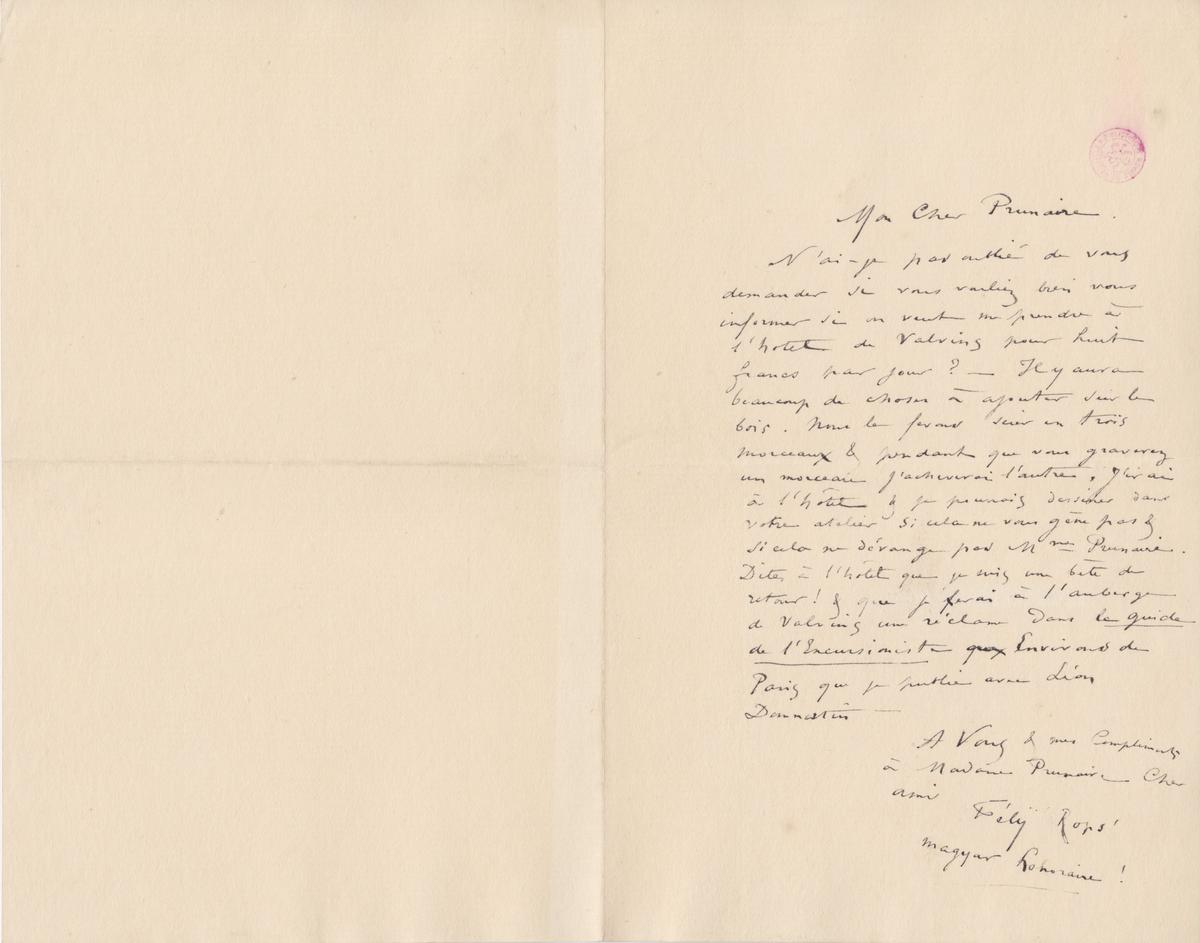 Mon Cher Prunaire.
N'ai-je pas oublié de vous
demander si vous vouliez bien vous
informer si on veut me prendre à
l'hôtel de Valvins pour huit
francs par jour ? — Il y aura
beaucoup de choses à ajouter sur le
bois. Nous le ferons scier en trois
morceaux & pendant que vous graverez
un morceau j'acheverai l'autre, J'irai
à l'hôtel & je pourrais dessiner dans
votre atelier si cela ne vous gêne pas &
si cela ne dérange pas Mme Prunaire.
Dites à l'hôtel que je suis une bête de
retour ! & que je ferai à l'auberge
de Valvins une réclame dans le guide
de l'Excursioniste aux Environs de
Paris que je publie avec Léon
Dommartin —
A Vous & mes Compliments
à Madame Prunaire Cher
ami
Félÿ Rops
magyar honoraire !